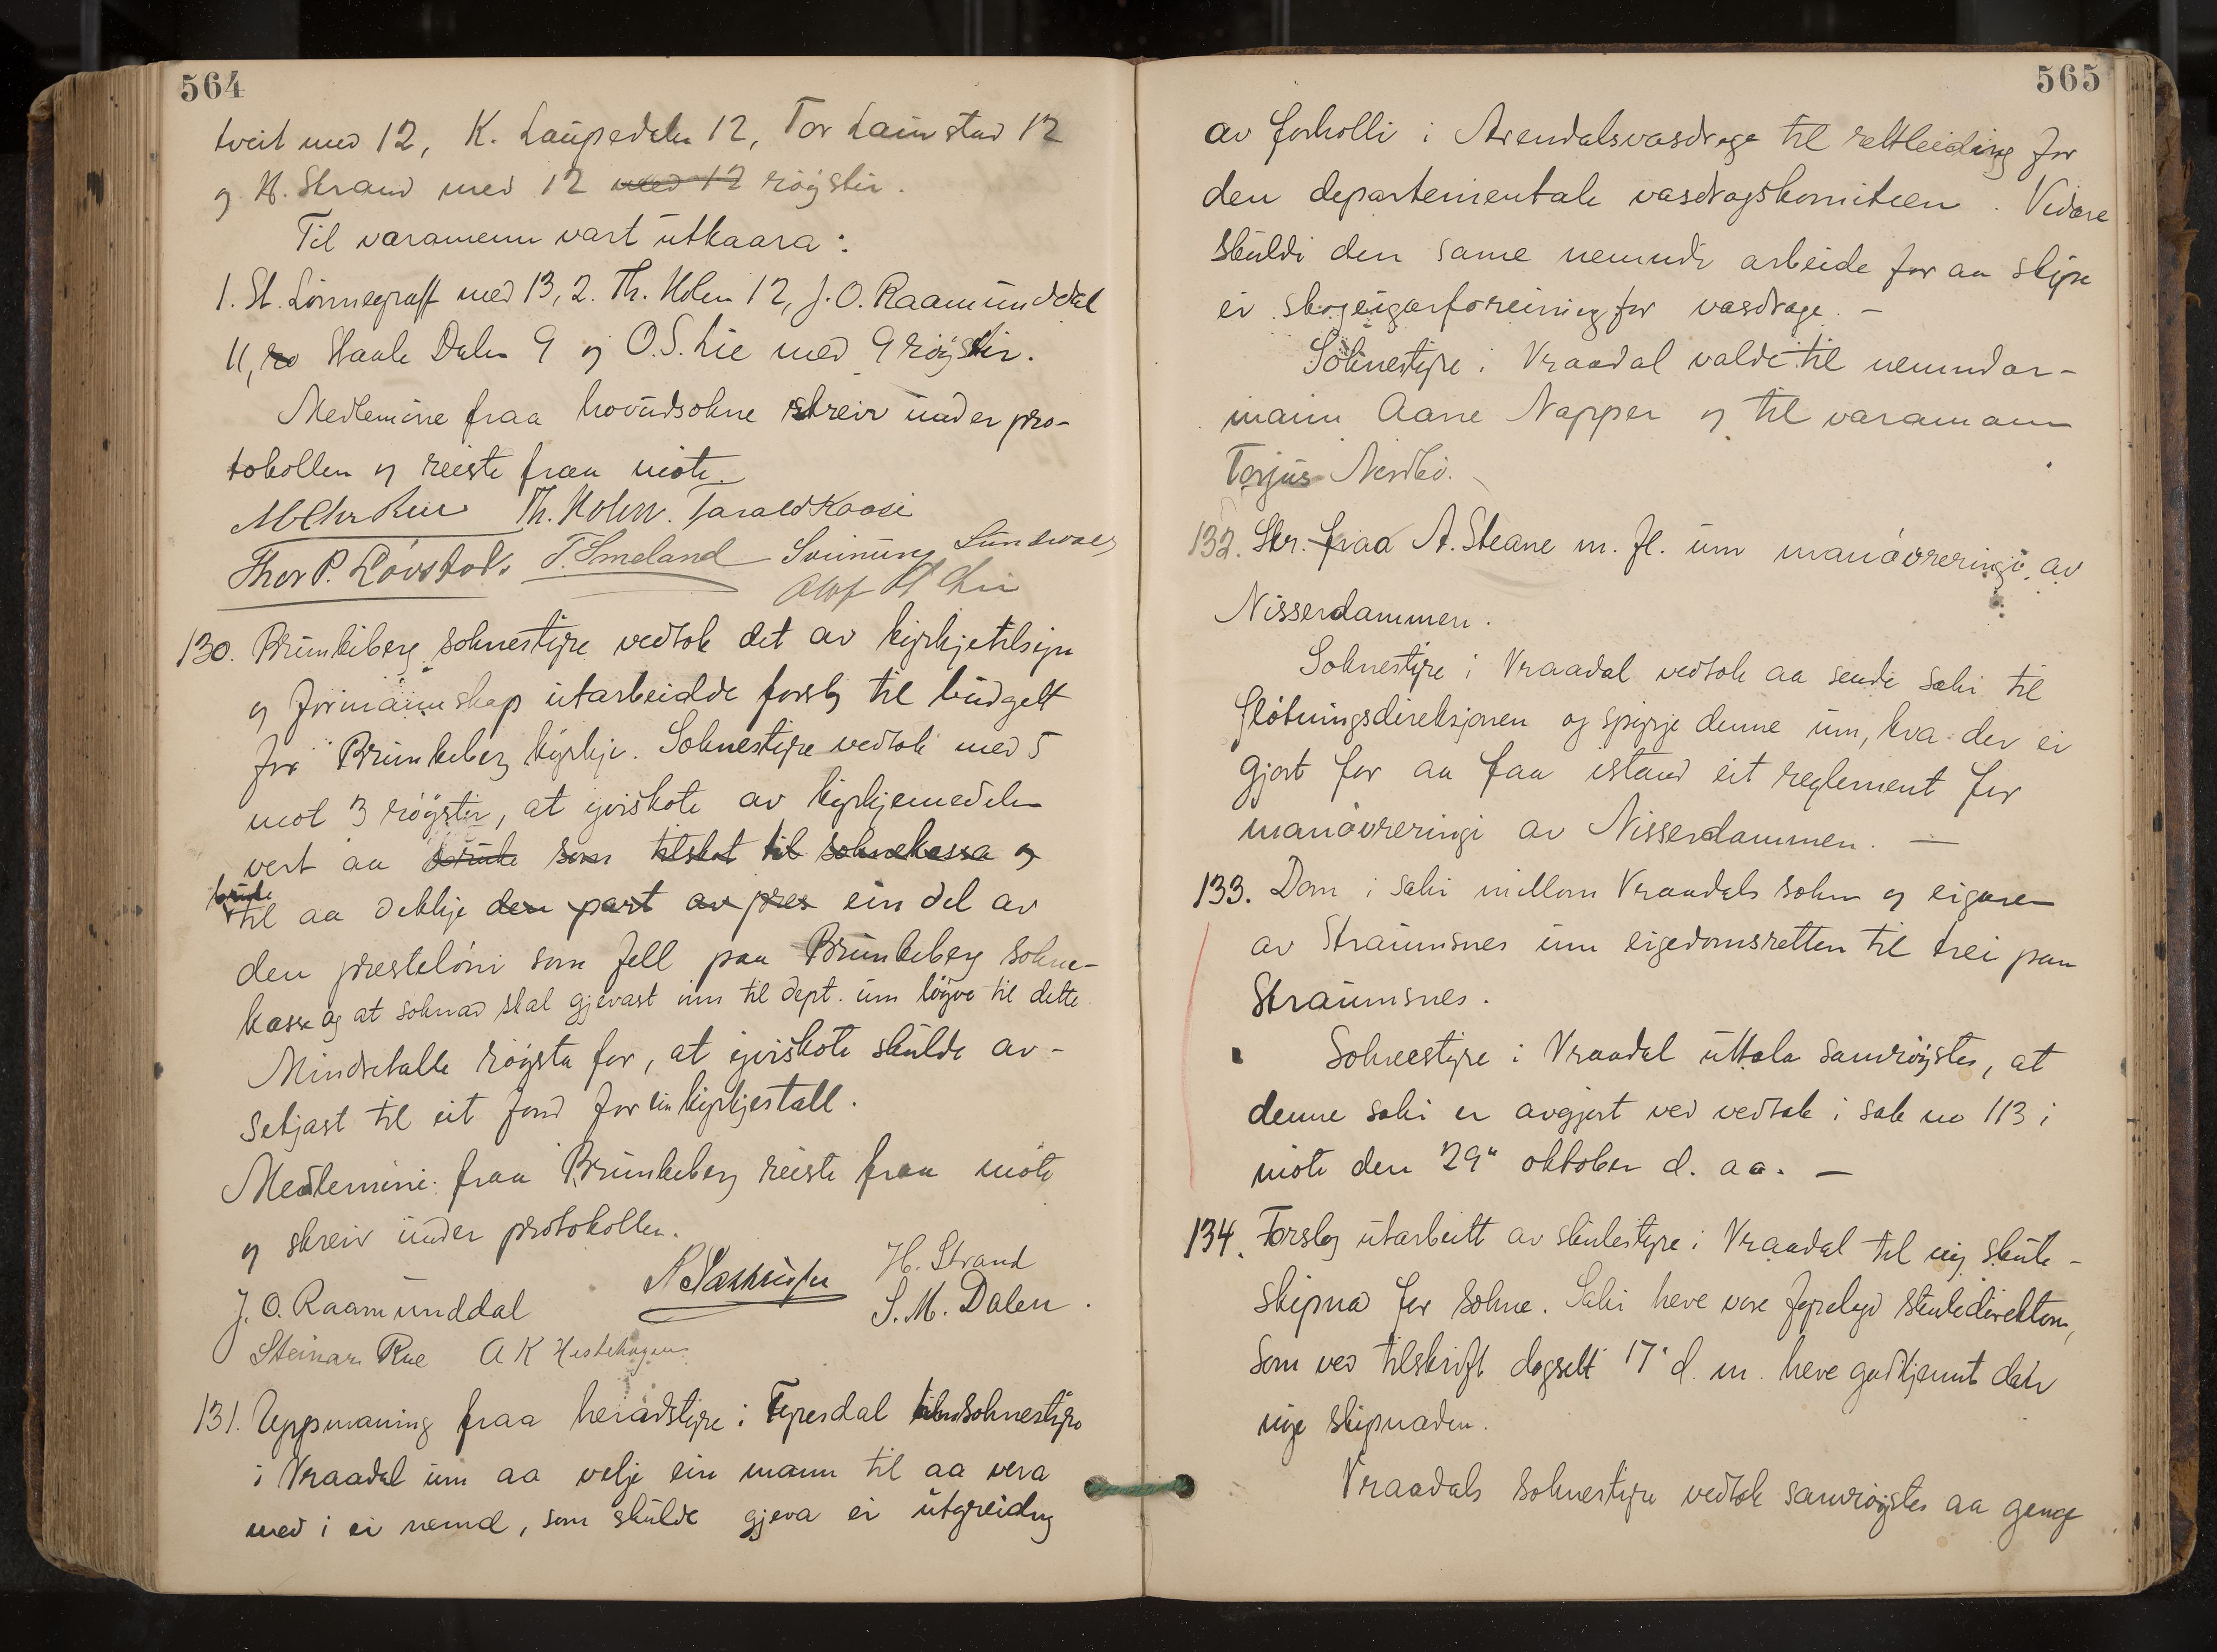 564
tveit med 12, K. Laupedalen 12, Tor Laimstad 12
og H. Strand med 12 med 12 röyster.
Til varamenn vart utkaara:
1. St. Lönnegraff med 13, 2. Th. Holen 12, J. O. Raamunddal
11, ro Staale Dalen 9 og O. S. Lie med 9 röyster.
Medlemine fraa hovudsokne skreiv under pro-
tokollen og reiste fraa möte.
Th. Holen. Tarald Kaasi
Thor P. Lövstad. T. Smeland Sveinung Sundvaag
Olaf H Lie
130. Brunkeberg soknestyre vedtok det av kyrkjetilsyn
og formannskap utarbeidde forslag til budgett
for Brunkeberg kyrkje. Soknestyre vedtok med 5
mot 3 röyster, at yviskote av kyrkjemedelen
vert aa bruke som tilskot til soknekassa og
bruke
til aa dekkje den part av pres ein del av
den presteløni som fell paa Brunkeberg sokne-
kasse og at soknad skal gjevast inn til dept. um löyve til dette
Mindretalle röysta for, at yviskote skulde av-
setjast til eit fond for ein kyrkjestall.
Medlemine fraa Brunkeberg reiste fraa möte
og skreiv under protokollen.
H. Strand
J. O. Raamunddal S. M. Dalen.
Steinar Rue A K Hestehagen
131. Uppmaning fraa heradstyre i Fyresdal til soknestyre
i Vraadal um aa velje ein mann til aa vera
med i ei nemd, som skulde gjeva ei utgreiding
565
av forholli i Arendalsvasdrage til rettleiding for
den departementale vasdragskomiteen. Vidare
skuldi den same nemndi arbeide for aa skipe
ei skogeigarforeining for vasdrage. -
Soknestyre i Vraadal valde til nemndar-
mann Aane Napper og til varamann
Torjus Nerdbö.
132. Skr. fraa A. Steane m. fl. um manövreringi av
Nisserdammen.
Soknestyre i Vraadal vedtok aa sende saki til
flötningsdireksjonen og spyrje denne um, kva der ei
gjort for aa faa istand eit reglement for
manövreringi av Nisserdammen. -
133. Dom i saki millom Vraadals sokn og eigaren
av Straumsnes um eigedomsretten til trei paa
Straumsnes.
Soknestyre i Vraadal uttala samröystes, at
denne saki er avgjort ved vedtak i sak no 113 i
möte den 29" oktober d. aa. -
134. Forslag utarbeitt av skulestyre i Vraadal til ny skule-
skipnad for sokne. Saki heve vore fyrelagd skuledirektoren,
som ved tilskrift dagsett 17' d. m. heve godkjennt den
nye skipnaden.
Vraadals soknestyre vedtok samröystes aa gange